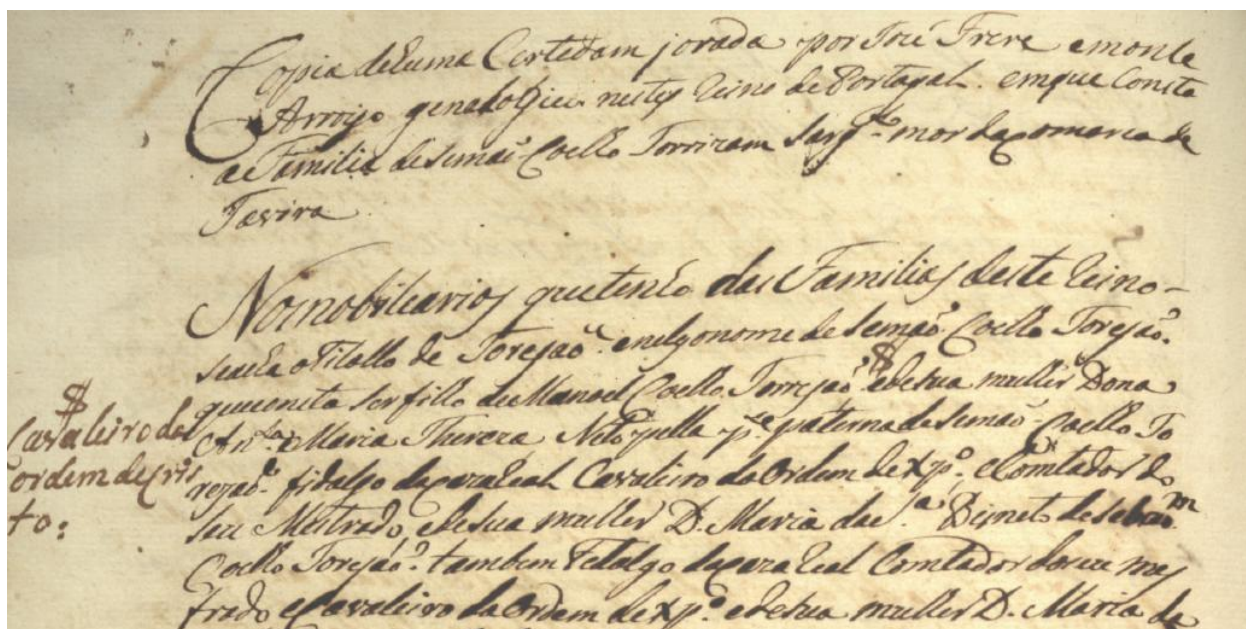 Copia de huma Certedam jorada por José Freire e monte
Arroyo genalogico nestes Reino de Portugal. em que Consta
a Familia de Semaõ Coelho Torrizam Sarg.to mor da Comarca de
Tavira
No nobiliarios que tenho das Familias deste Reino
se acha o Titollo de Torejaõ. e nelle o nome de Semaõ Coelho Torejaõ.
que consta ser fillo de Manoel Coelho Torrejaõ $ e de sua muller Dona
An.ta Maria Thereza Neto pella p.te paterna de Semaõ Coello To
rejaõ. fidalgo da caza Real Cavaleiro da Ordem de Xp.o e Comtador do
seu Mestrado, e de sua muller D. Maria da
Coello Torejaõ. tambem Fidalgo da caza Real Comtador do seu mes
trado e Cavaleiro da Ordem de Xp.o e de sua muller D. Maria de
$
Cavaleiro da
ordem de Cris
to: